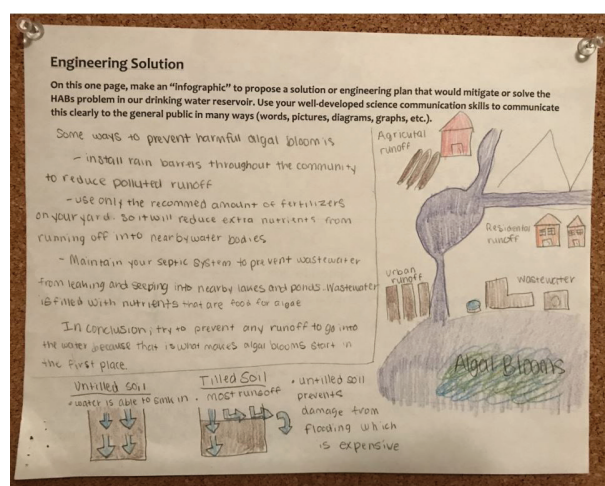 Engineering Solution
On this one page, make an "infographic" to propose a solution or engineering plan that would mitigate or solve the
HABs problem in our drinking water reservoir. Use your well-developed science communication skills to communicate
this clearly to the general public in many ways (words, pictures, diagrams, graphs, etc.).
Some ways to prevent harmful algal bloom is
- install rain barrels throughout the community
to reduce polluted runoff
- use only the recommed amount of fertilizers
on your yard. So it will reduce extra nutrients from
running off into nearby water bodies
- Maintain your septic system to prevent wastewater
from leaking and seeping into nearby lakes and ponds. Wastewater
is filled with nutrients that are food for algae
In conclusion, try to prevent any runoff to go into
the water because that is what makes algal blooms start in
the first place
Agricultal
runoff
Residental
runoff
Urban
runoff
Wastewater
Algal Blooms
Untilled soil
• water is able to sink in
Tilled Soil
• most runoff
• untilled soil
prevents
damage from
flooding which
is expensive